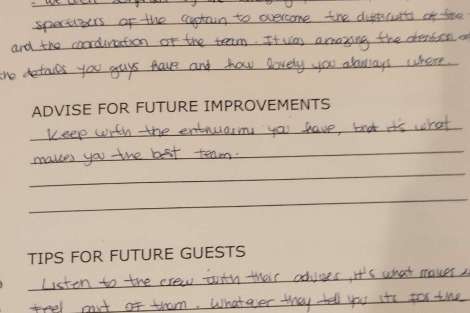 of the captain to overcome the of the
and the coordination of the team. It was amazing the
the details you guys have and how lovely you always where.
ADVISE FOR FUTURE IMPROVEMENTS
Keep with the you have, that it's what
makes you the best team.
TIPS FOR FUTURE GUESTS
Listen to the crew with their advises, it's what makes
feel part of them. Whatever they tell you its for the